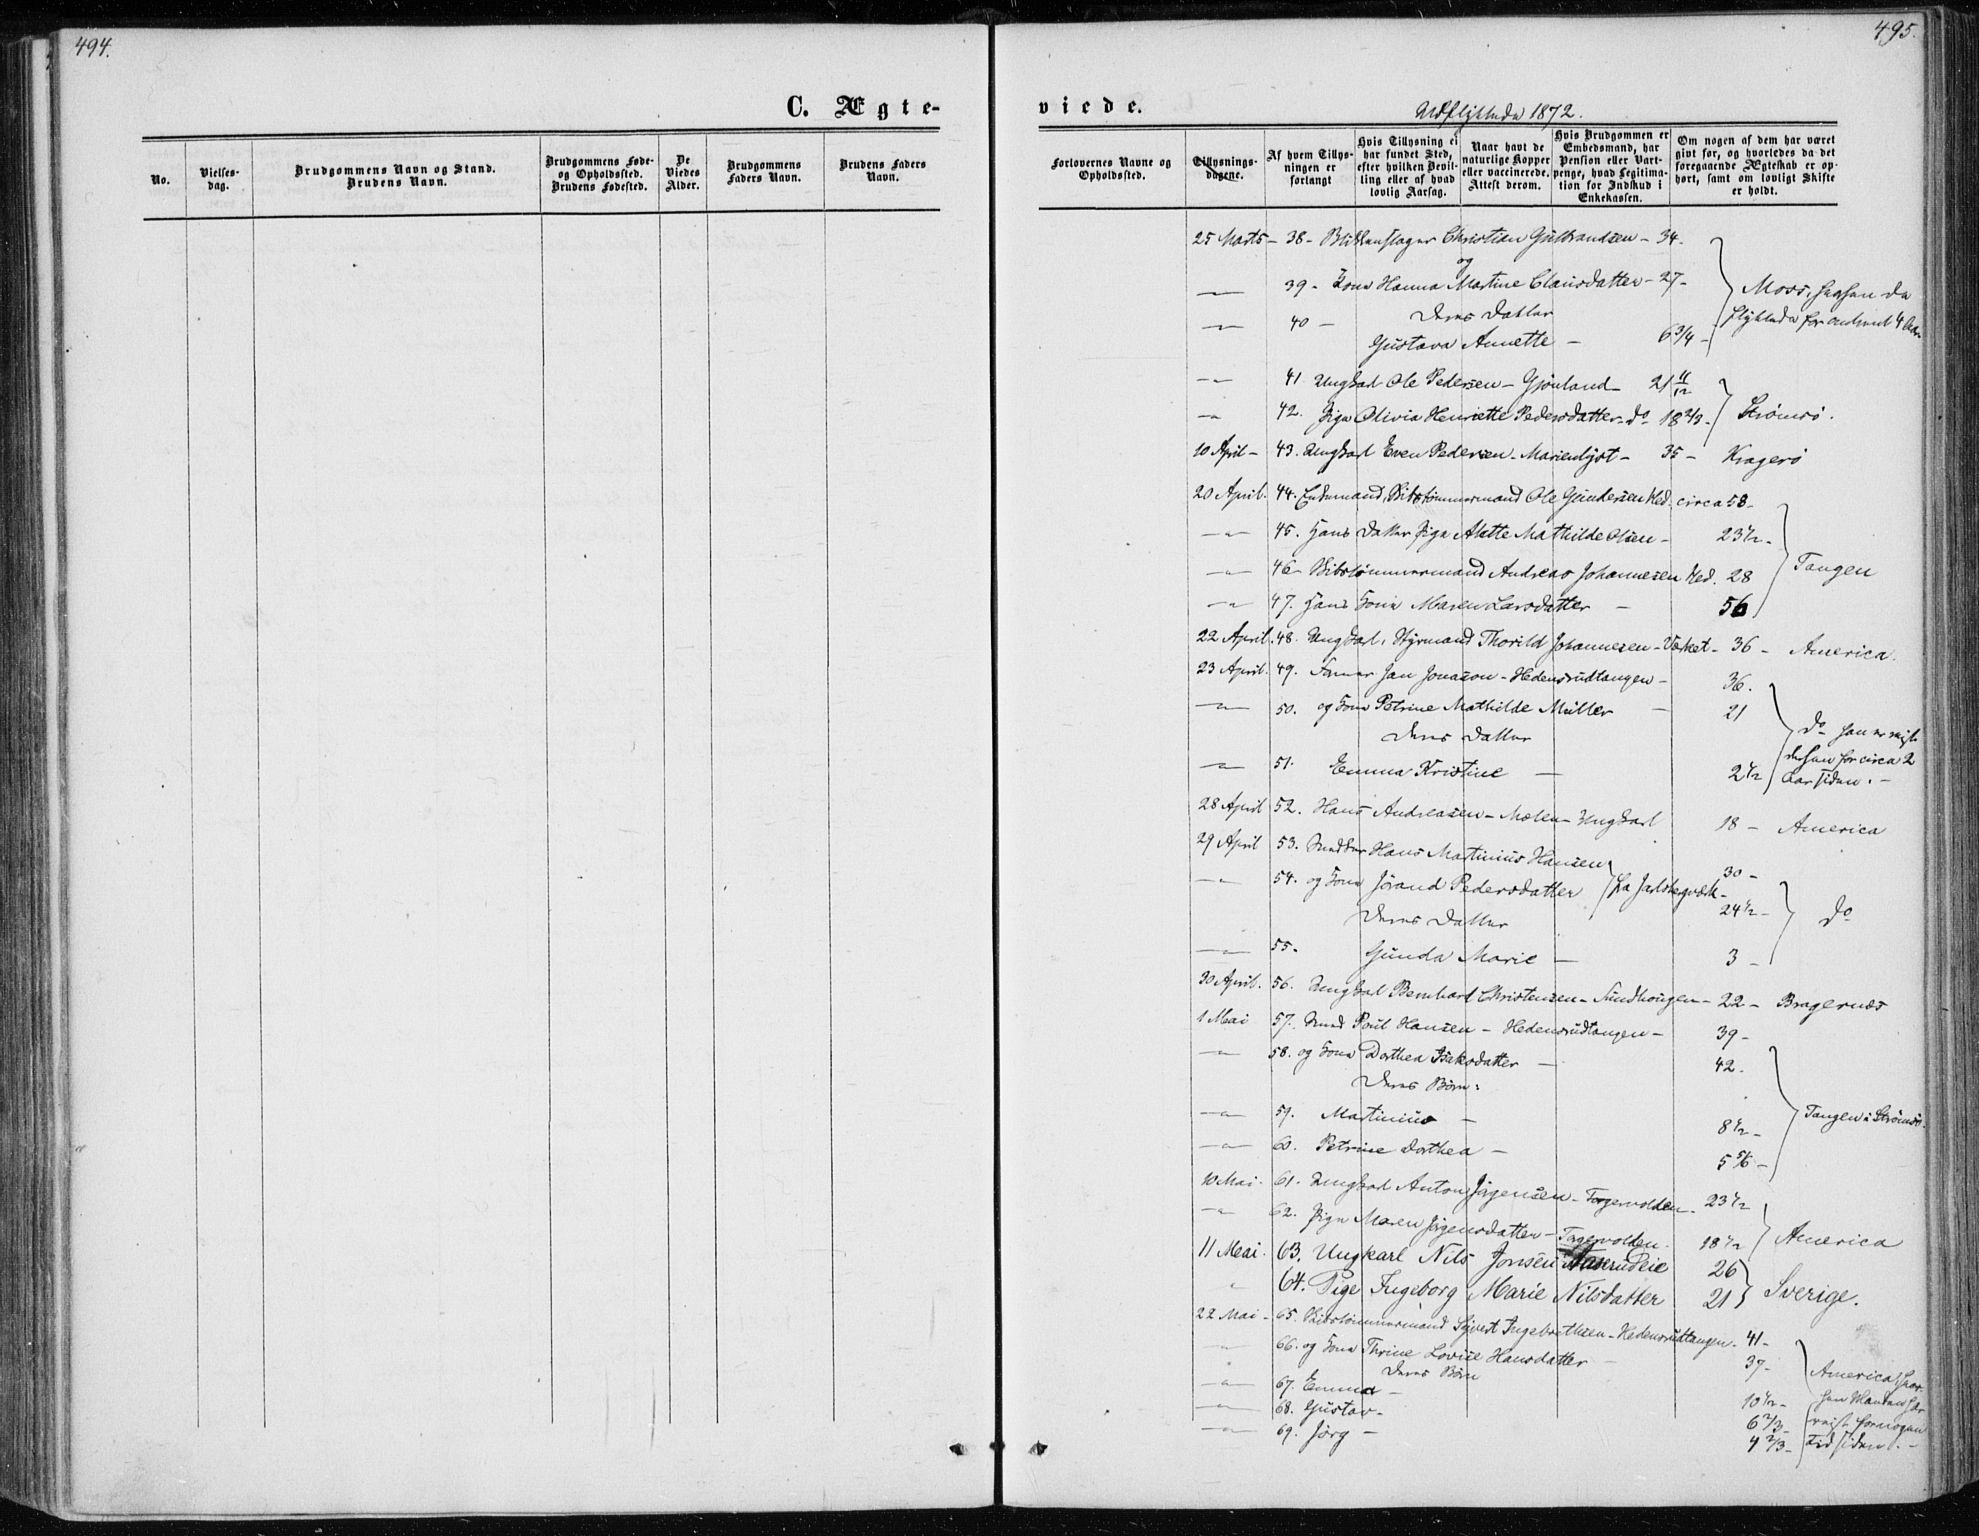 494.
495.
C. Ægte-
viede.
Udflyttede 1872.
No.
Vielses-
dag.
Brudgommens Navn og Stand.
Brudens Navn.
Brudgommens Føde-
og Opholdssted.
Brudens Fødested.
De
Viedes
Alder.
Brudgommens
Faders Navn.
Brudens Faders
Navn.
Forlovernes Navne og
Opholdssted.
Tillysnings-
dagene.
Af hvem Tillys-
ningen er
forlangt
Hvis Tillysning ei
har fundet Sted,
efter hvilken Bevil-
ling eller af hvad
lovlig Aarsag.
Naar havt de
naturlige Kopper
eller vaccinerede.
Attest derom.
Hvis Brudgommen er
Embedsmand, har
Pension eller Vart-
penge, hvad Legitima-
tion for Indskud i
Enkekassen.
Om nogen af dem har været
givt før, og hvorledes da det
foregaaende Ægteskab er op-
hørt, samt om lovligt Skifte
er holdt.
25 Marts - 38 - Blikkenslager Christian Gulbrandsen - 34 -
og
— 39 - Kone Hanna Martine Clausdatter - 27 - Moss, hvorhen de
— 40 - Deres Datter flyttede for omtrent 4 
Gustava Annette - 6 3/4 -
— 41. Ungkarl Ole Pedersen - Gjønland - 21 11/12
— 42. Pige Olivia Henriette Pedersdatter - do 18 2/3 - Strømsø.
10 April - 43. Ungkarl Even Pedersen - Marienlyst - 35 - Kragerø
20 April. 44. Enkemand, Skibstømmermand Ole Gundersen Hed. circa 58 -
— 45. Hans Datter Pige Alette Mathilde Olsen - 23 1/2 -
— 46 - Skibstømmermand Andreas Johannesen Hed. 28 Tangen
— 47. Hans Kone Maren Larsdatter - 56
22 April. 48. Ungkarl, Styrmand Thorild Johannesen - Værket - 36 - America.
23 April. 49. Farver Jan Jonason - Hedensrudtangen - 36.
— 50. og Kone Petrine Mathilde Müller - 21
Deres Datter do han er reist
— 51. Emma Kristine - 2 1/2 derhen for circa 2
Aar siden. -
28 April 52. Hans Andreasen - Mølen - Ungkarl 18 - America
29 April 53. Hans Martinius Hansen 30 -
— 54. og Kone Jørand Pedersdatter fra Jarlsbergværk - 24 1/2 -
Deres Datter do
— 55. Gunda Marie - 3 -
30 April. 56. Ungkarl Bernhart Christensen - Sundhougen - 22 - Bragernæs
1 Mai 57. Poul Hansen - Hedensrudtangen - 39 -
— 58. og Kone Dorthea Isaksdatter - 42.
Deres Børn:
— 59. Martinius - 8 1/2 - Tangen i Strømsø.
— 60. Petrine Dorthea - 5 5/6 -
10 Mai. 61. Ungkarl Anton Jørgensen - Tegervolden. 23 1/2
— 62. Pige Maren Jørgensdatter - Tegervolden. 18 1/2 America
11 Mai. 63. Ungkarl Nils Jonsen Aaserudeie 26
" 64. Pige Ingeborg Marie Nilsdatter 21 Sverige.
22 Mai - 65. Skibstømmermand Syvert Ingebrethsen - Hedensrudtangen - 41 -
— 66. og Kone Thrine Lovise Hansdatter - 37 -
Deres Børn
— 67. Emma - 10 1/2 - America, hvor-
— 68. Gustav - 6 2/3 - hen Manden er
— 69. Jørg - 4 2/3 - reist for nogen
Tid siden. -